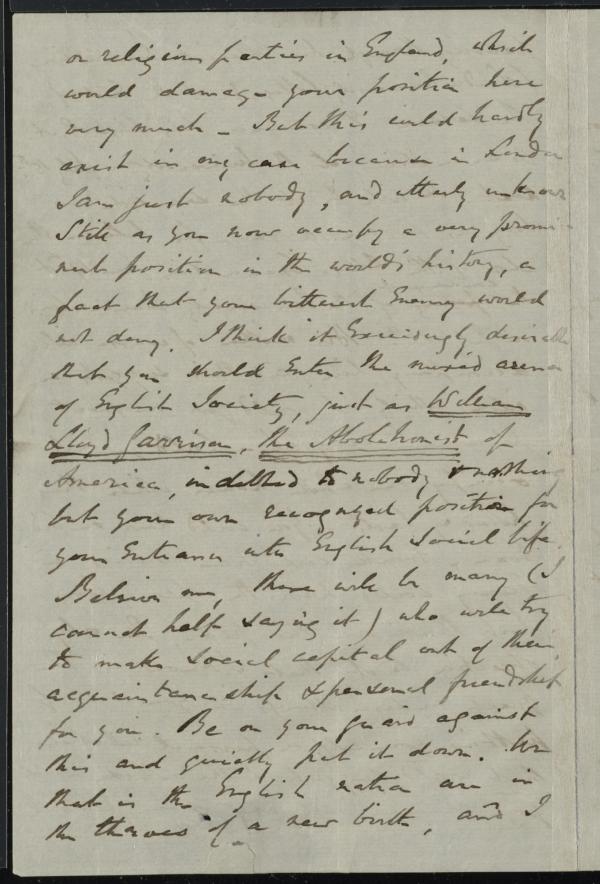 or religious parties in England, which
would damage your position here
very much – But this could hardly
exist in my case because in London
I am just nobody, and utterly unknown
Still as you now occupy a very promi-
nent position in the world's history, a
fact that your bitterest Enemy would
not deny. I think it Exceedingly desirable
that you should Enter the mixed arena
of English Society, just as William
Lloyd Garrison, the Abolitionist of
America, indebted to nobody & nothing
but your own recognized position for
your Entrance into English Social life.
Believe me, there will be many (I
cannot help saying it) who will try
to make social capital out of their
acquaintanceship & personal friendship
for you. Be on your guard against
this and quietly put it down. We
that is the English nation are in
the throes of a new birth, and I